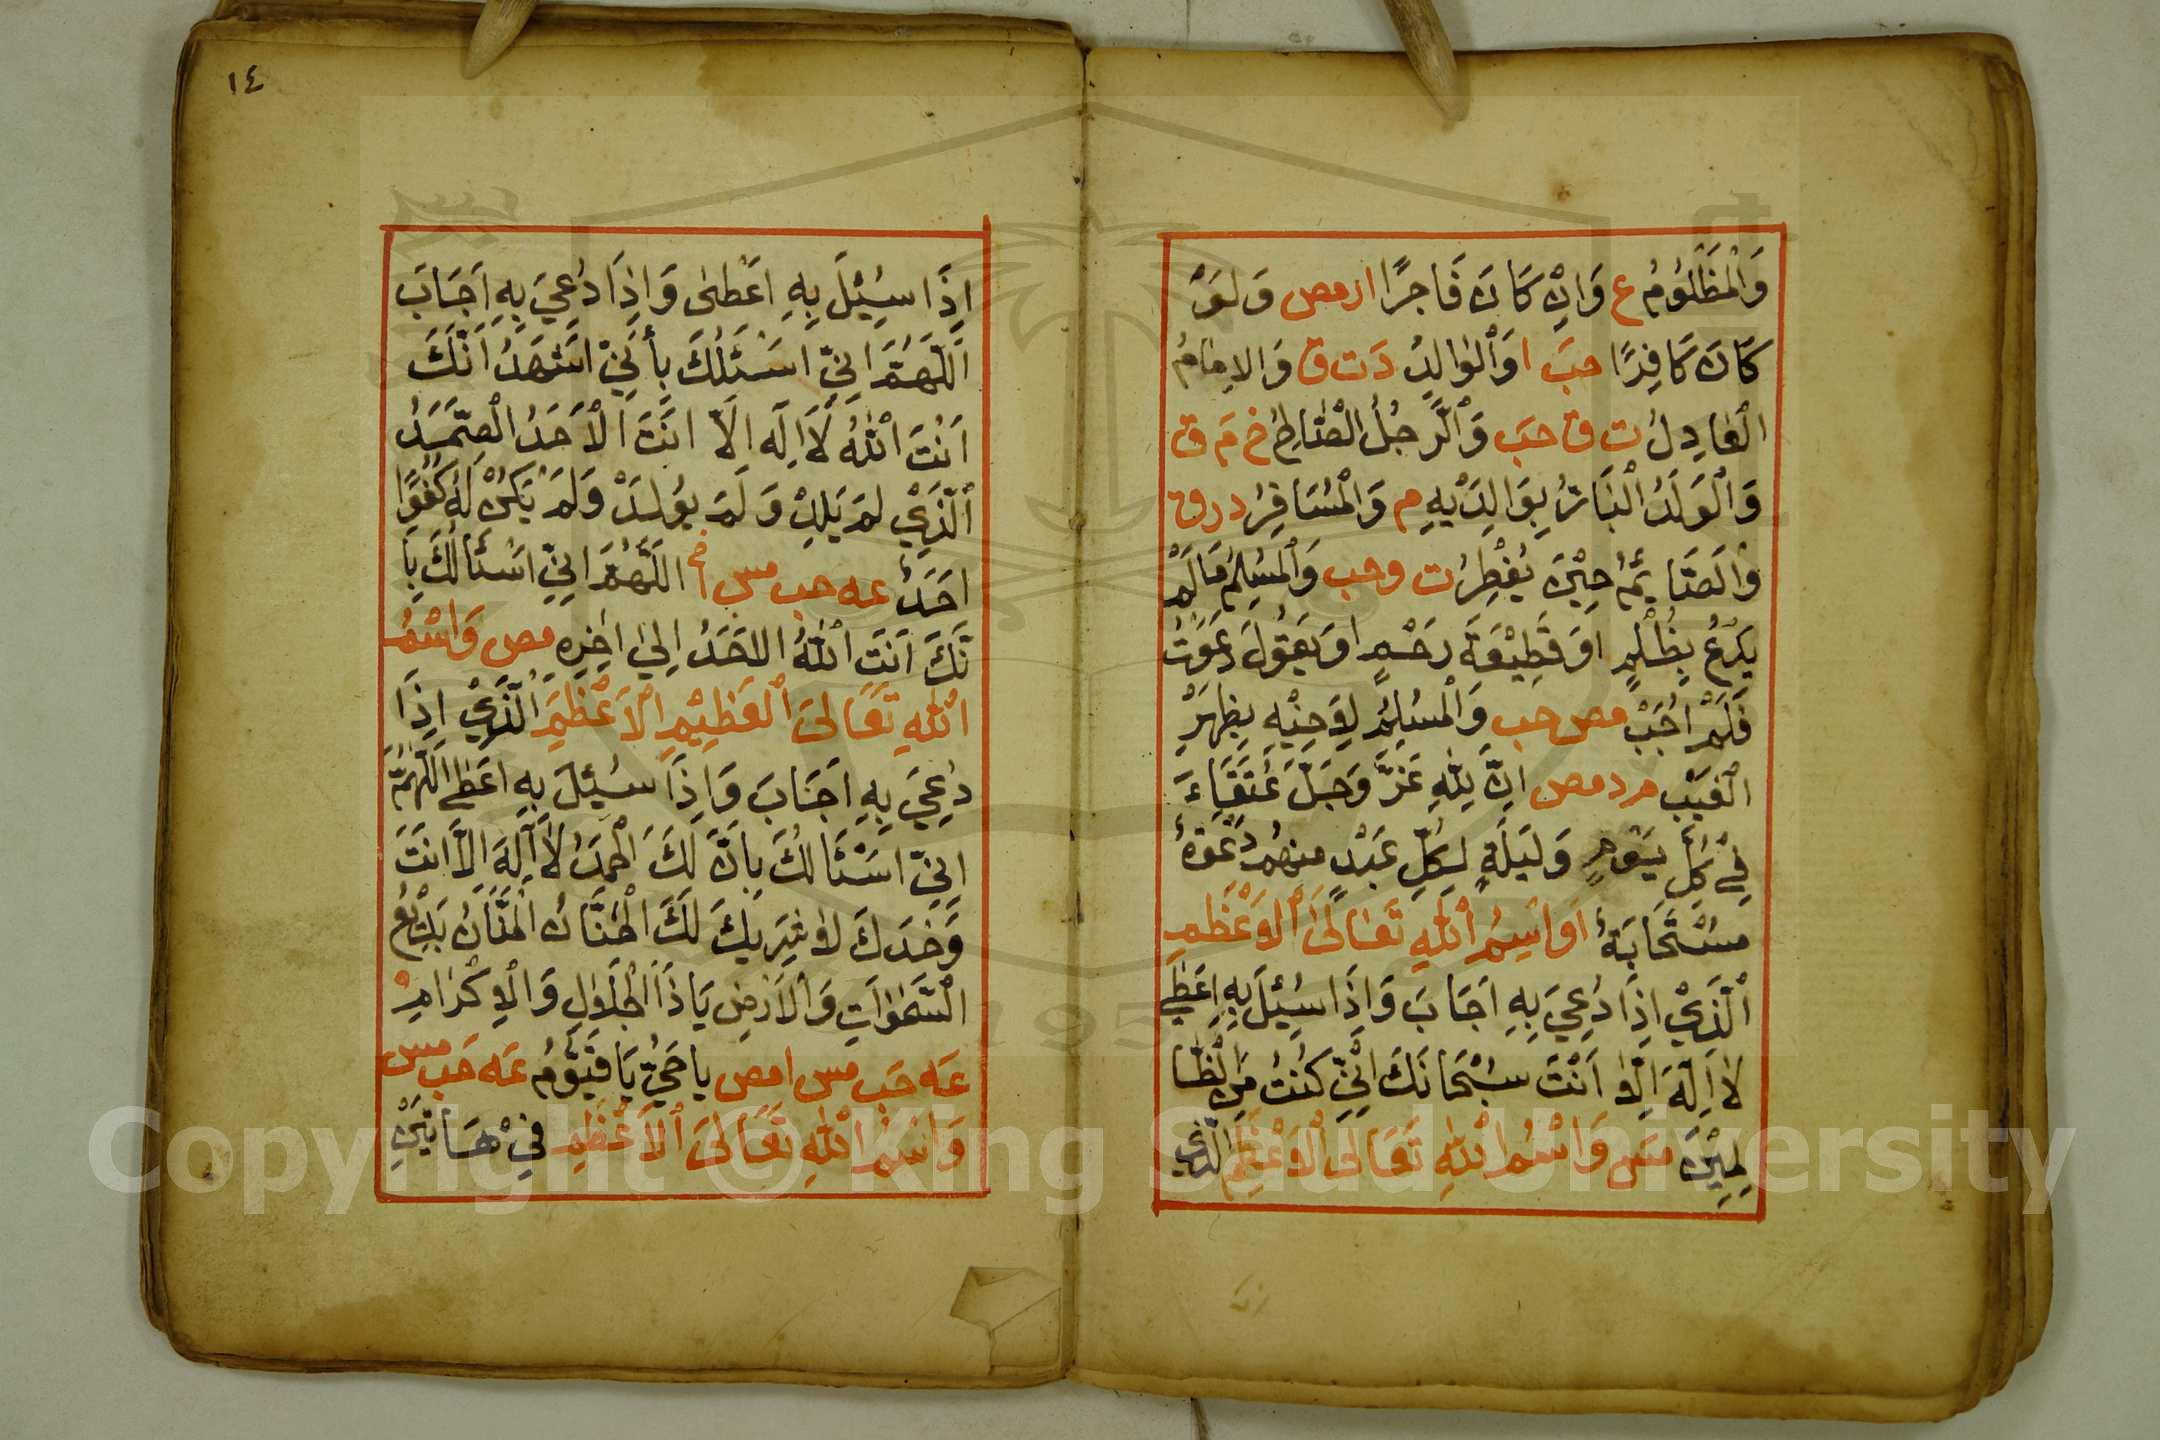 وَالْمَظْلُوْمُ ع وَاِنْ كَانَ فَاجِرًا ا ر مص وَلَوْ
كَانَ كَافِرًا حب ا وَالْوَالِدُ د ت ق وَالْاِمَامُ
الْعَادِلُ ت ق حب وَالرَّجُلُ الصَّالِحُ خ م ق
وَالْوَلَدُ الْبَارُّ بِوَالِدَيْهِ م وَالْمُسَافِرُ د ر ق
وَالصَّائِمُ حِيْنَ يُفْطِرُ ت ق حب وَالْمُسْلِمُ مَالَمْ
يَدْعُ بِظُلْمٍ اَوْ قَطِيْعَةِ رَحْمٍ اَوْ يَقُوْلَ دَعَوْتُ
فَلَمْ اُجَبْ مص حب وَالْمُسْلِمُ لِاَخِيْهِ بِظَهْرِ
الْغَيْبِ م د مص اِنَّ لِلّٰهِ عَزَّ وَجَلَّ عُتَقَاءَ
فِيْ كُلِّ يَوْمٍ وَلَيْلَةٍ لِكُلِّ عَبْدٍ مِنْهُمْ دَعْوَةٌ
مُسْتَجَابَةٌ ا وَاسْمُ اللّٰهِ تَعَالٰى الْاَعْظَمِ
الَّذِيْ اِذَا دُعِيَ بِهِ اَجَابَ وَاِذَا سُئِلَ بِهِ اَعْطٰى
لَا اِلٰهَ اِلَّا اَنْتَ سُبْحَانَكَ اِنِّيْ كُنْتُ مِنَ الظَّا
لِمِيْنَ مس وَاسْمُ اللّٰهِ تَعَالٰى الْاَعْظَمِ الَّذِيْ
١٤
اِذَا سُئِلَ بِهِ اَعْطٰى وَاِذَا دُعِيَ بِهِ اَجَابَ
اَللّٰهُمَّ اِنِّيْ اَسْئَلُكَ بِأَنِّيْ اَشْهَدُ اَنَّكَ
اَنْتَ اللّٰهُ لَا اِلٰهَ اِلَّا اَنْتَ الْاَحَدُ الصَّمَدُ
الَّذِيْ لَمْ يَلِدْ وَلَمْ يُوْلَدْ وَلَمْ يَكُنْ لَهُ كُفُوًا
اَحَدٌ عه حب مس ا اَللّٰهُمَّ اِنِّيْ اَسْئَالُكَ بِاَ
نَّكَ اَنْتَ اللّٰهُ الْاَحَدُ اِلٰى اٰخِرِهِ مص وَاسْمُ
اللّٰهِ تَعَالٰى الْعَظِيْمِ الْاَعْظَمِ الَّذِيْ اِذَا
دُعِيَ بِهِ اَجَابَ وَاِذَا سُئِلَ بِهِ اَعْطٰى اَللّٰهُمَّ
اِنِّيْ اَسْئَالُكَ بِاَنَّ لَكَ الْحَمْدُ لَا اِلٰهَ اِلَّا اَنْتَ
وَحْدَكَ لَا شَرِيْكَ لَكَ الْحَنَّانُ الْمَنَّانُ بَدِيْعُ
السَّمٰوَاتِ وَالْاَرْضِ يَا ذَا الْجَلَالِ وَالْاِكْرَامِ
عه حب مس ا مص يَا حَيُّ يَا قَيُّوْمُ عه حب مس
وَاسْمُ اللّٰهِ تَعَالٰى الْاَعْظَمِ فِيْ هَاتَيْنِ
Copyright © King Saud University